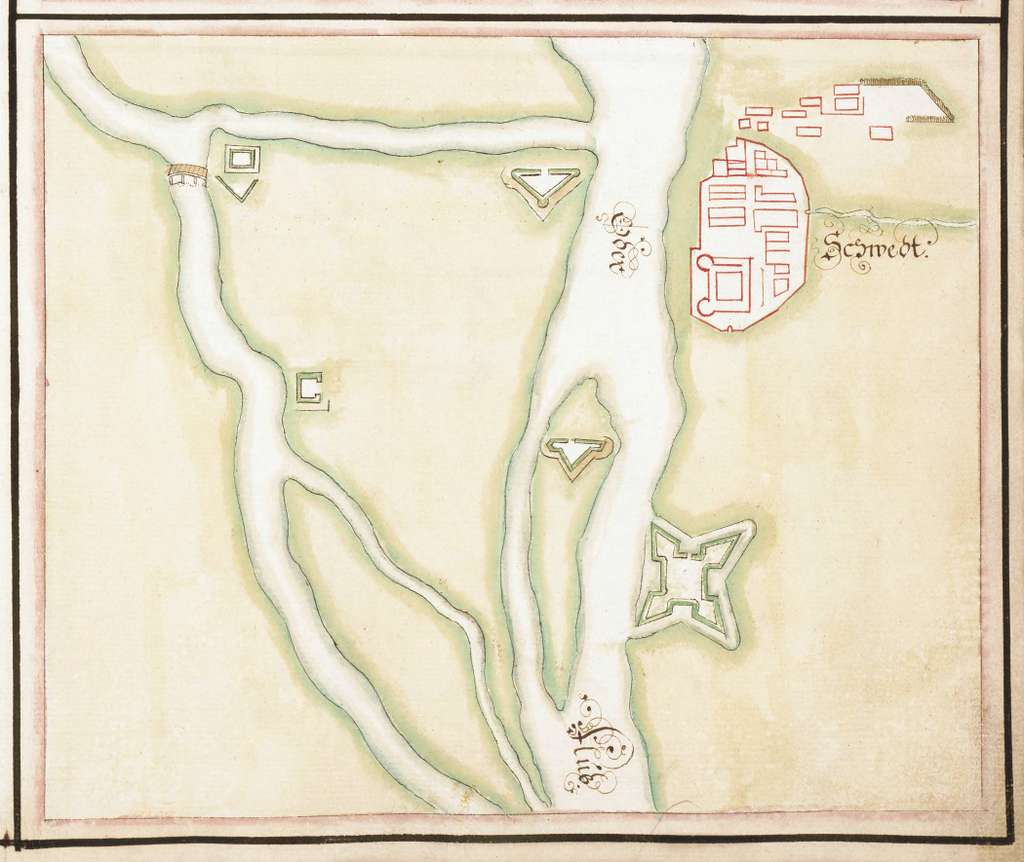 Oder
Schwedt:
Fluß.